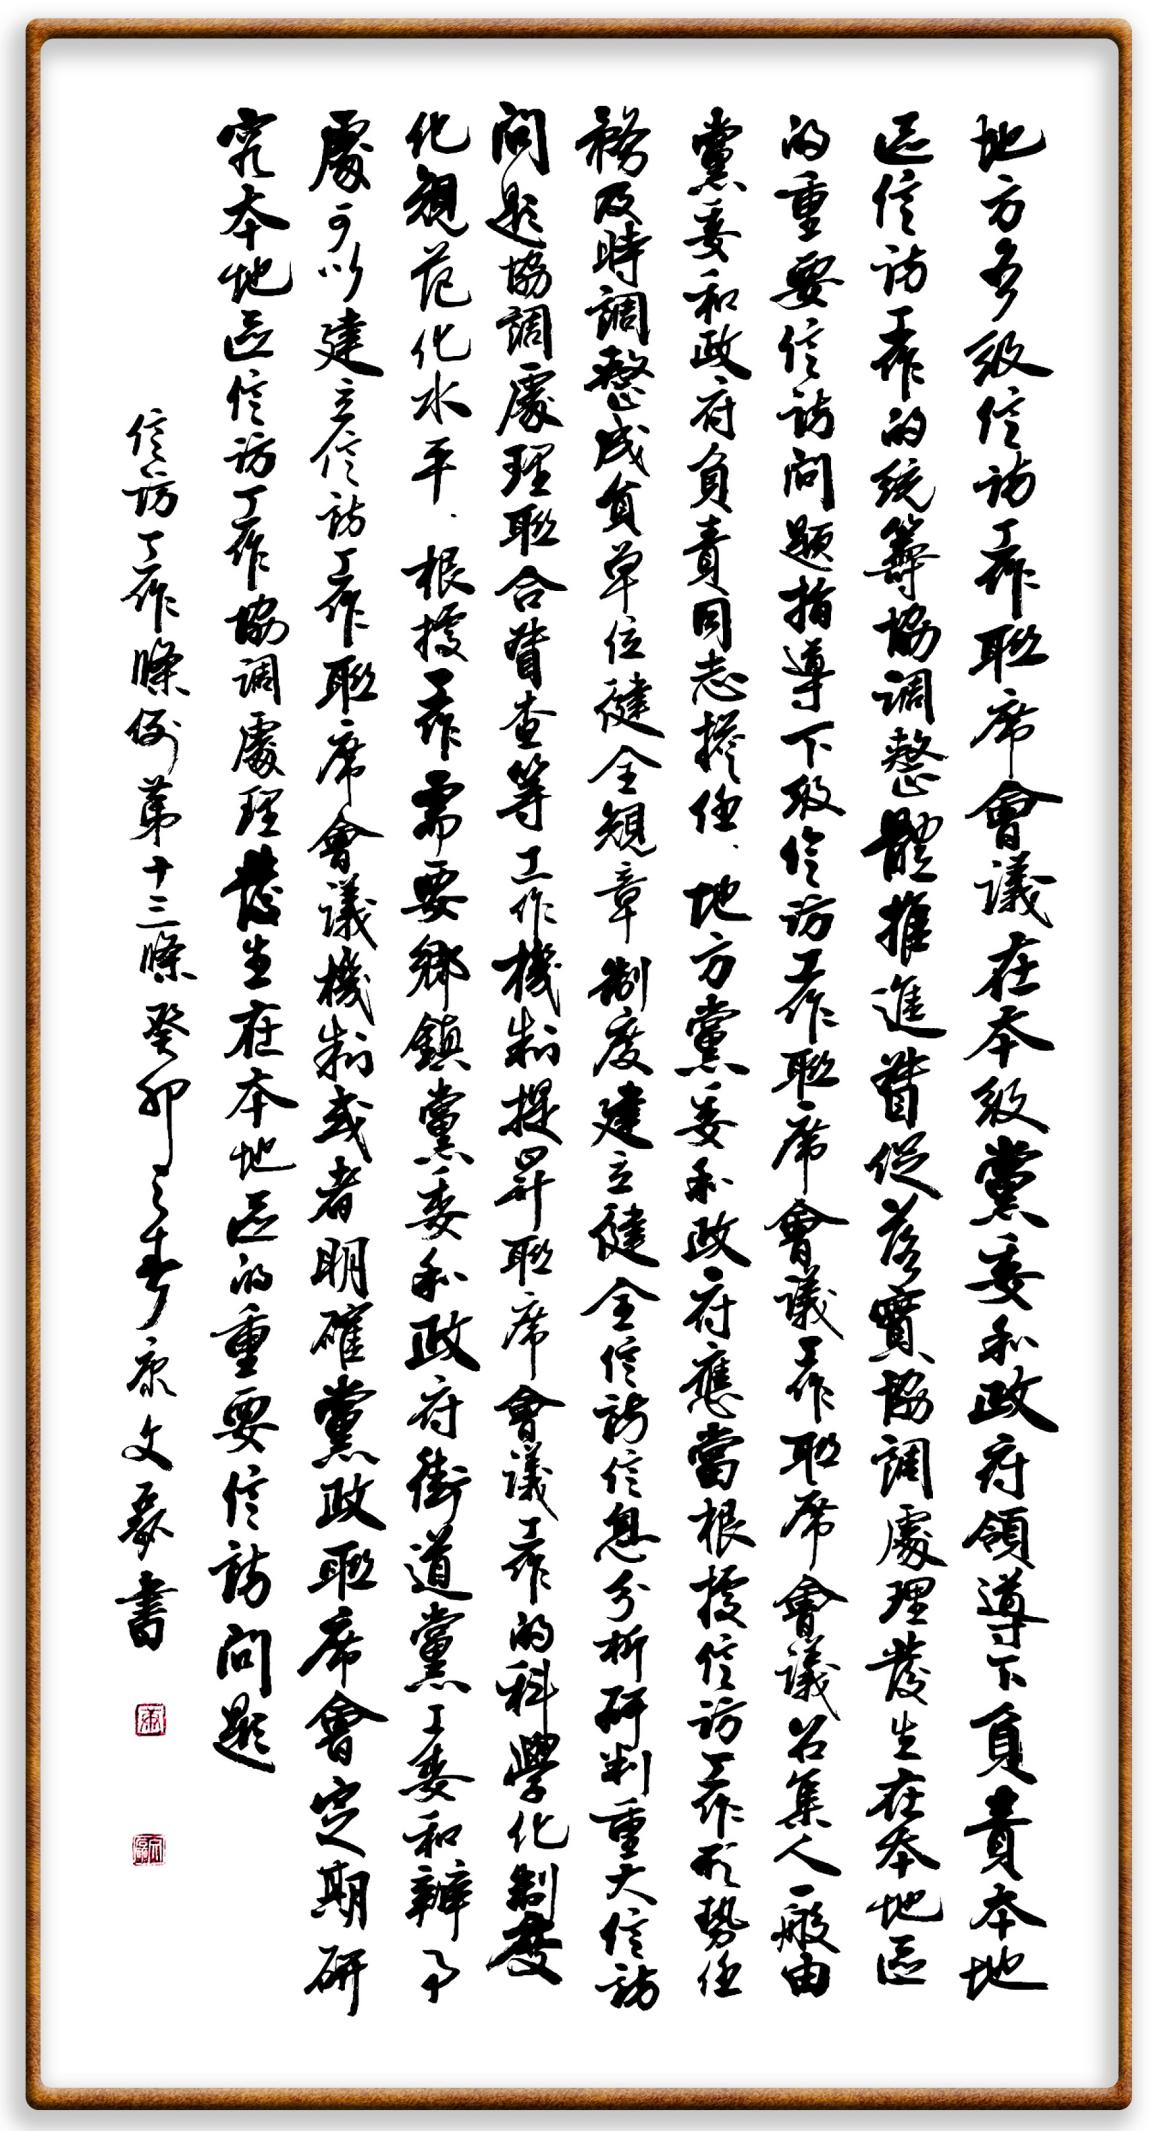 地方各級信訪工作聯席會議在本級黨委和政府領導下負責本地
區信訪工作的統籌協調整體推進督促落實協調處理發生在本地區
的重要信訪問題指導下級信訪工作聯席會議工作聯席會議召集人一般由
黨委和政府負責同志擔任、地方黨委和政府應當根據信訪工作形勢任
務及時調整成員單位健全規章制度建立健全信訪信息分析研判重大信訪
問題協調處理聯合督查等工作機制提昇聯席會議工作的科學化制度
化規范化水平、根據工作需要鄉鎮黨委和政府街道黨工委和辦事
處可以建立信訪工作聯席會議機制或者明確黨政聯席會定期研
究本地區信訪工作協調處理發生在本地區的重要信訪問題
信訪工作條例第十三條癸卯之春康文爵書